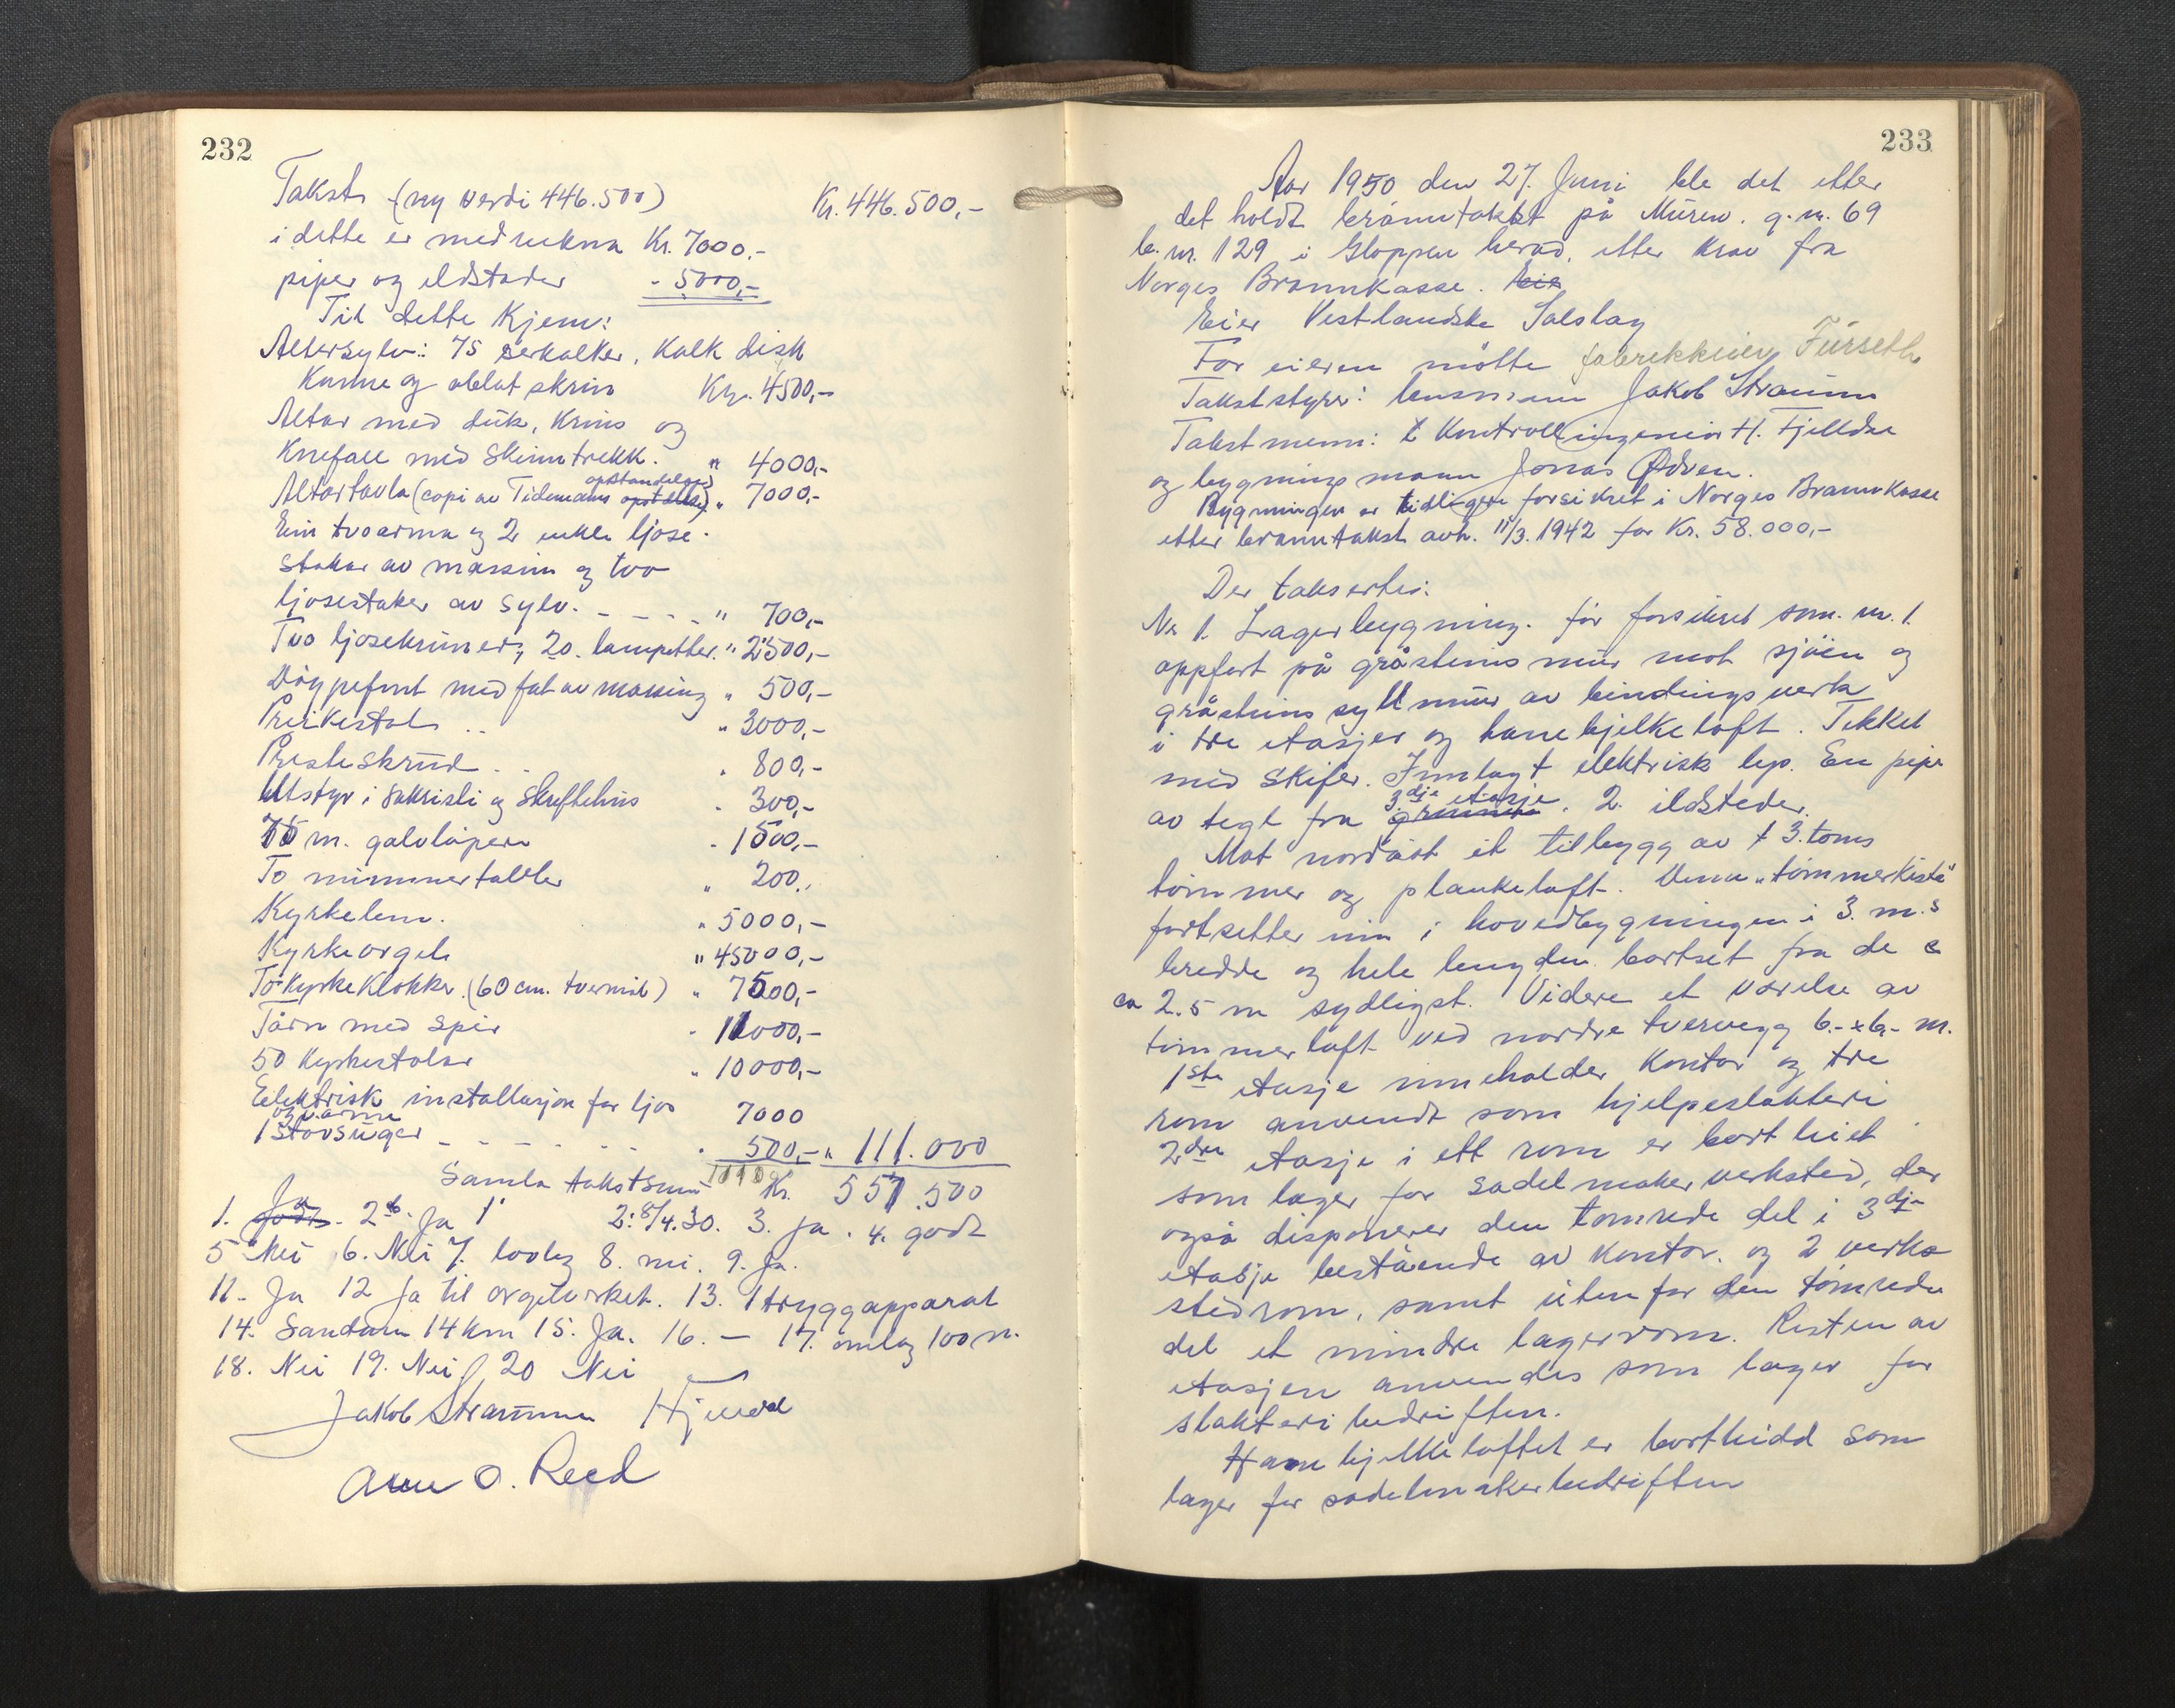 232
Takst (ny verdi 446.500) Kr. 446.500,-
i dette er medrekna Kr. 7000.-
piper og eldstader - 5000,-
Til dette kjem:
Altersylv: 75 serkalker, Kalk disk
Kanne og oblat skrin Kr. 4500,-
Altar med duk, Krus og
Knefall med Skinntrekk. " 4000,-
Altartavla (copi av Tidemans opstandelse) " 7000,-
Ein tvoarma og 2 enkle ljose-
stakar av massing og tvo
ljosestaker av sylv. - - - - " 700,-
Tvo ljosekruner, 20. lampetter. " 2500,-
Døypefont med fat av messing " 500,-
Preikestol .. " 3000,-
Presteskrud . . " 800,-
Utstyr i sakristi og Skriftehus - 300,-
75 m. golvløpere - 1500,-
To minnnertavler " 200.,
Kyrkelem. " 5000,-
Kyrkeorgel " 45000,-
To Kyrkeklokker (60 cm. tvermål) " 7500,-
Tårn med spir - 11000,-
50 Kyrkestolar " 10000,-
Eelektrisk installasjon for ljos 7000
og varme
1 Støvsuger - - - - - - - 500,- " 111.000
Samla takstsum Kr. 557.500
1. Ja 2b. Ja 1 2: 8/4.30. 3. ja. 4. godt
5 Nei 6. Nei 7. lovleg 8. nei. 9. Ja.
11- Ja 12 Ja til orgelverket. 13. 1 tryggapparat
14. Sandane 14 km 15. Ja. 16. - 17. omlag 100 m.
18. Nei 19. Nei 20 Nei
Jakob Straumme
Arne O. Reed
233
Aar 1950 den 27. Juni ble det etter
det holdt branntakst på Muren. g.nr. 69
b.nr. 129 i Gloppen herad, etter krav fra
Norges Brannkasse. Eie
Eier Vestlandske Salslag
For eieren møtte fabrikkeier Fürseth
Takststyrer: lensmann Jakob Straume
Takstmenn: Kontrollingeniør H. Fjelldal
og bygningsmann Jonas Ødven.
Bygningen er tidligere forsikret i Norges Brannkasse
etter branntakst avh. 11/3. 1942 for Kr. 58.000,-
Der taksertes:
Nr 1. Lagerbygning. før forsikret som nr. 1.
oppført på gråsteins mur mot sjøen og
gråsteins syllmur av bindingsverk
i tre etasjer og hanebjelkeloft. Tekket
med Skifer. Innlagt elektrisk lys. En pipe
av tegl fra grunnen 3.dje etasje. 2. ildsteder.
Mot nordøst et tilbygg av 3. toms
tømmer og plankeloft. Denne "tømmerkiste"
fortsetter inn i hovedbygningen i 3. m.s
bredde og hele lengden bortset fra de
ca 2.5 m sydligst. Videre et værelse av
tømmerloft ved nordre tvervegg 6.- x 6,- m.
1ste etasje inneholder Kontor og tre
rom anvendt som hjelpeslakteri
2dre etasje i ett rom er bortleiet
som lager for sadelmakerverksted, der
også disponerer den tømrede del i 3dje
etasje bestående av kontor. og 2 verks
stedrom, samt utenfor den tømrede
del et mindre lagerrom. Resten av
etasjen anvendes som lager for
slakteribedriften.
Hanebjelkeloftet er bortleidd som
lager for sadelmakerbedriften